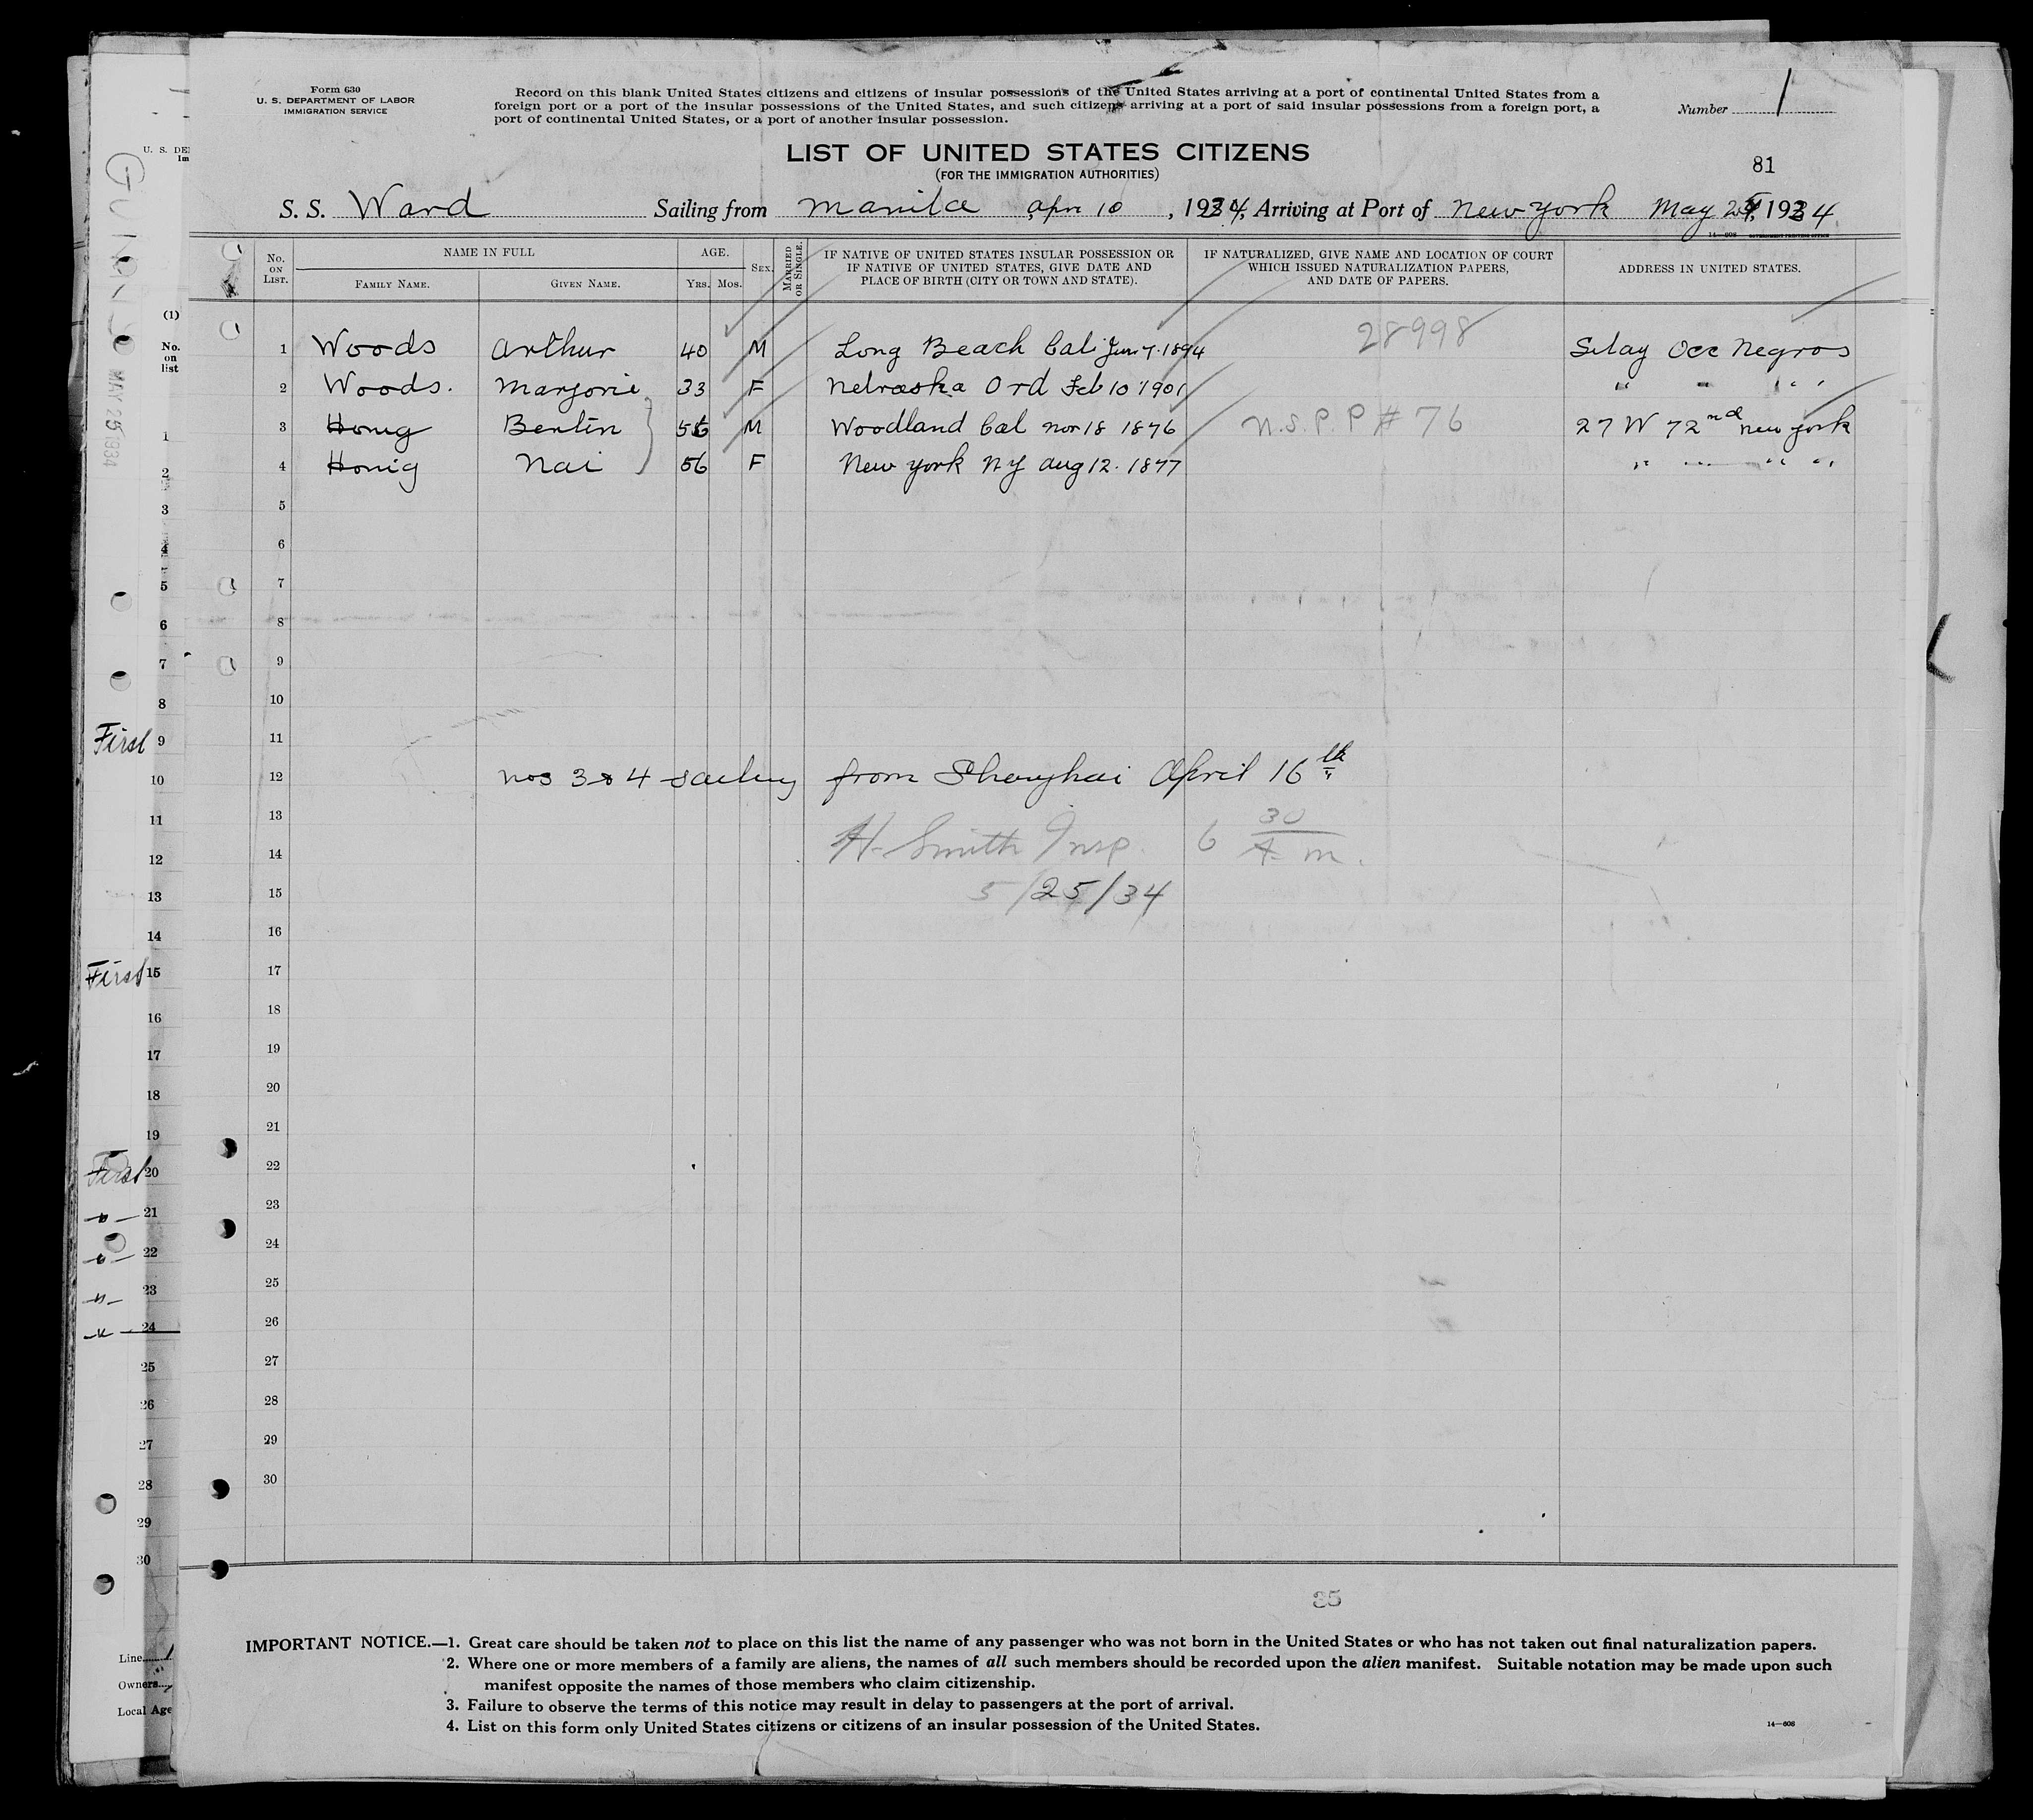 Form 630
U. S. DEPARTMENT OF LABOR
IMMIGRATION SERVICE
Record on this blank United States citizens and citizens of insular possessions of the United States arriving at a port of continental United States from a
foreign port or a port of the insular possessions of the United States, and such citizens arriving at a port of said insular possessions from a foreign port, a
port of continental United States, or a port of another insular possession.
Number 1
LIST OF UNITED STATES CITIZENS
(FOR THE IMMIGRATION AUTHORITIES)
81
S. S. Ward Sailing from Manila Apr 10, 1934, Arriving at Port of New York May 25, 1934
14—608 GOVERNMENT PRINTING OFFICE
No. on List. NAME IN FULL AGE. Sex. Married or Single. IF NATIVE OF UNITED STATES INSULAR POSSESSION OR IF NATIVE OF UNITED STATES, GIVE DATE AND PLACE OF BIRTH (CITY OR TOWN AND STATE). IF NATURALIZED, GIVE NAME AND LOCATION OF COURT WHICH ISSUED NATURALIZATION PAPERS, AND DATE OF PAPERS. ADDRESS IN UNITED STATES.
Family Name. Given Name. Yrs. Mos.
28998
1 Woods Arthur 40 M Long Beach Cal Jun 7. 1894 Silay Occ Negros
2 Woods. Marjorie 33 F Nebraska Ord Feb 10 1901 " " " "
3 Honig Bertin 56 M Woodland Cal Nov 18 1876 N.S.P.P # 76 27 W 72nd New York
4 Honig Nai 56 F New York NY Aug 12. 1877 " " " "
5
6
7
8
9
10
11
12 nos 3 & 4 sailing from Shanghai April 16th
13
H. Smith Insp. 6 30 A m.
14
15 5/25/34
16
17
18
19
20
21
22
23
24
25
26
27
28
29
30
35
IMPORTANT NOTICE.—1. Great care should be taken not to place on this list the name of any passenger who was not born in the United States or who has not taken out final naturalization papers.
2. Where one or more members of a family are aliens, the names of all such members should be recorded upon the alien manifest. Suitable notation may be made upon such
manifest opposite the names of those members who claim citizenship.
3. Failure to observe the terms of this notice may result in delay to passengers at the port of arrival.
4. List on this form only United States citizens or citizens of an insular possession of the United States.
14—608
U. S. DE
Im
MAY 25 1934
(1)
No.
on
list
1
2
3
4
5
6
7
8
First 9
10
11
12
13
14
First 15
16
17
18
19
First 20
21
22
23
24
25
26
27
28
29
30
Line
Owners
Local Age